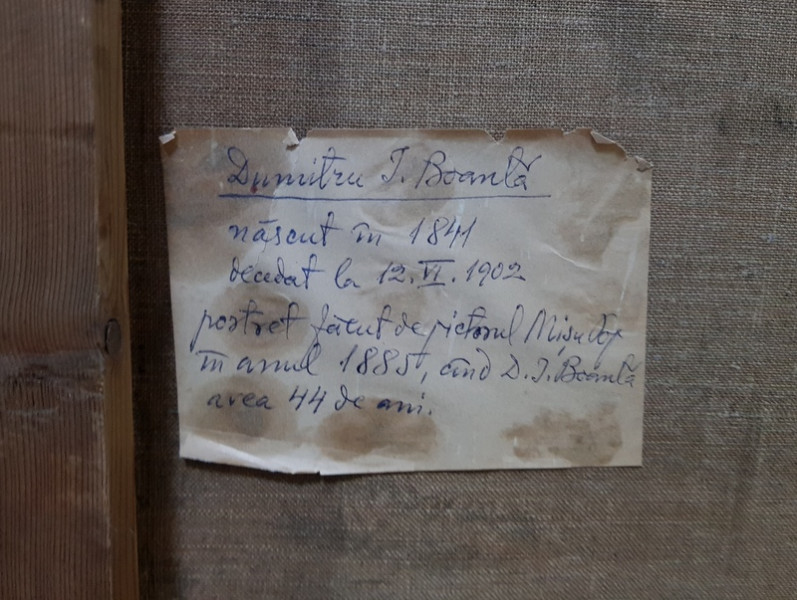 Dumitru I. Boantă
născut în 1841
decedat la 12.VI.1902
portret făcut de pictorul Mișu Pop
în anul 1885, când D.I. Boantă
avea 44 de ani.